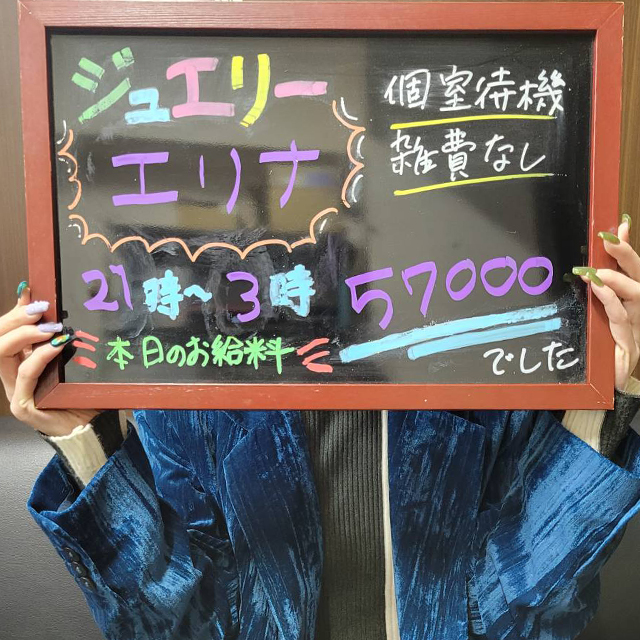 ジュエリー
エリナ
個室待機
雑費なし
21時~3時
57000
本日のお給料
でした